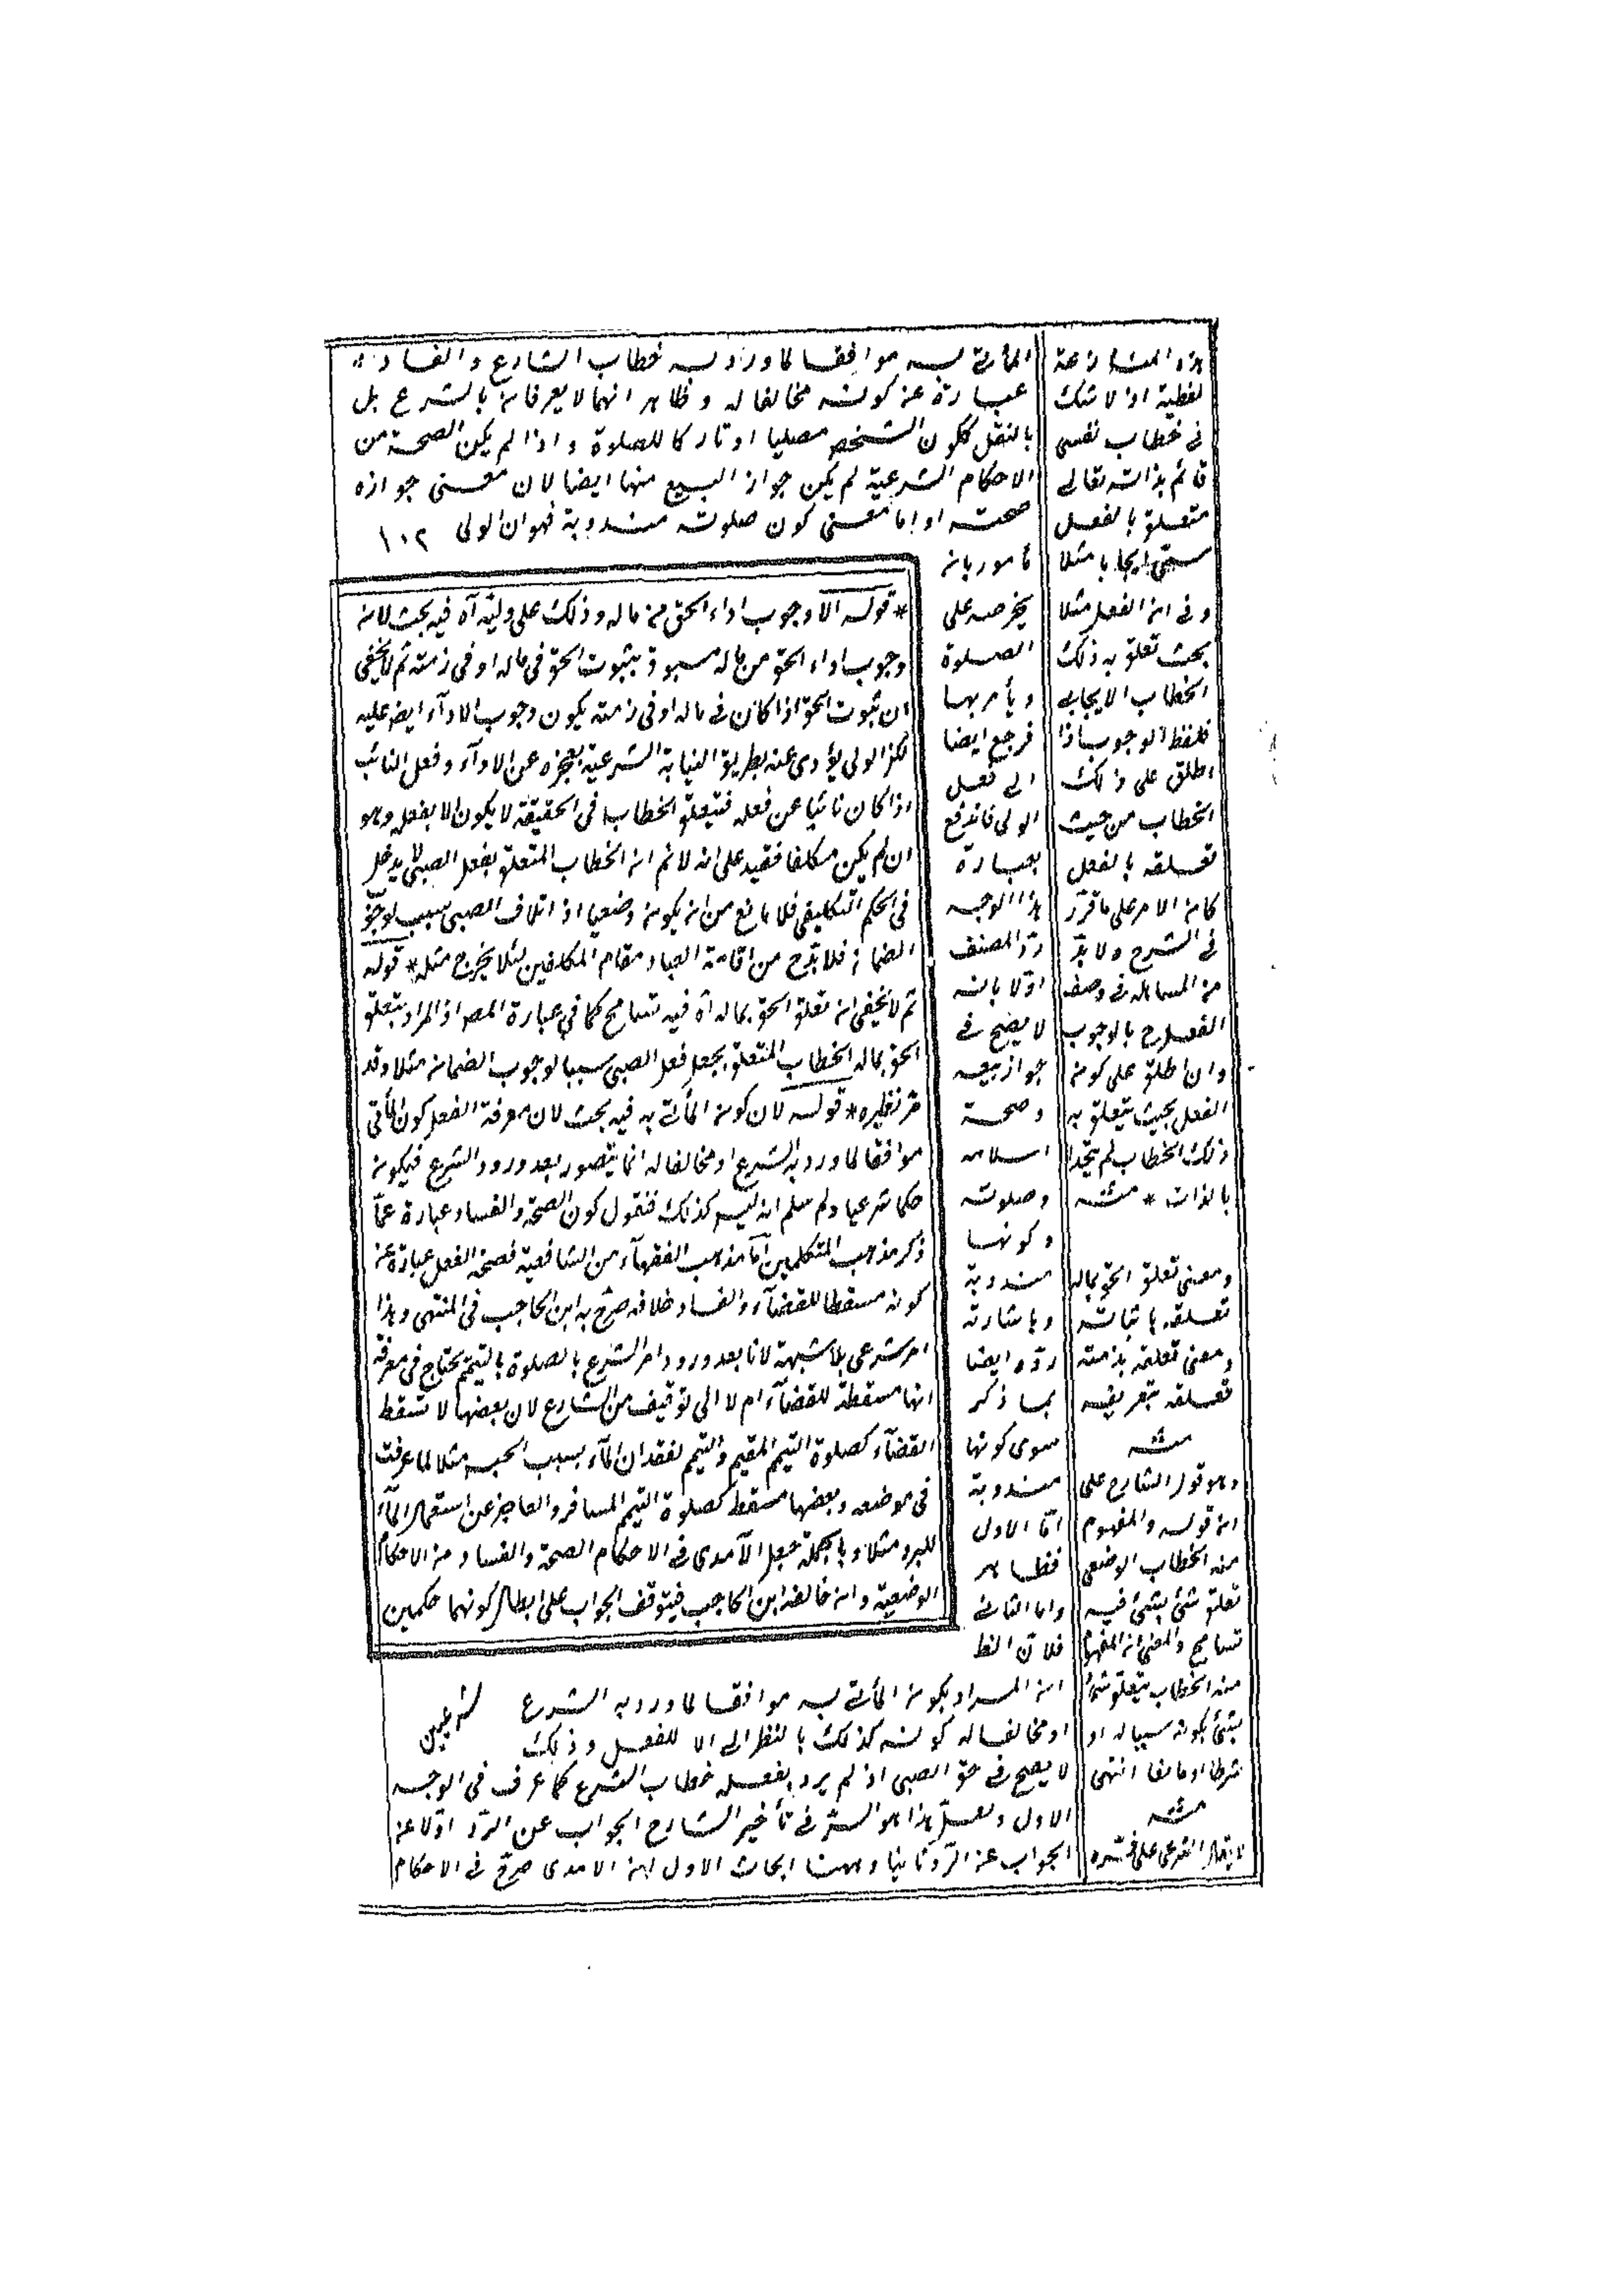 المأتى به موافقا لما ورد به خطاب الشارع والفساد
عبارة عن كونه مخالفا له وظاهر انهما لا يعرفان بالشرع بل
بالعقل ككون الشخص مصليا او تاركا للصلوة واذا لم يكن الصحة من
الاحكام الشرعية لم يكن جواز البيع منها ايضا لان معنى جوازه
صحته او اما معنى كون صلوته مندوبة فهو ان الولى ١٠٢
مأمور بان
يحرضه على
الصلوة
ويأمر بها
فرجع ايضا
الى فعل
الولى فاندفع
بعبارة
هذا الوجه
رد المصنف
اولا بانه
لا يصح فى
جواز بيعه
وصحة
اسلامه
وصلوته
وكونها
مندوبة
وباشارته
رده ايضا
بما ذكر
سوى كونها
مندوبة
اما الاول
فظاهر
واما الثانى
فلان الظ
ان المراد بكون المأتى به موافقا لما ورد به الشرع
او مخالفا له كونه كذلك بالنظر الى الفعل وذلك
لا يصح فى حق الصبى اذ لم يرد بفعله خطاب الشرع كما عرف فى الوجه
الاول ولعل هذا هو السر فى تأخير الشارح الجواب عن الرد اولا عن
الجواب عن الرد ثانيا وههنا ابحاث الاول ان الامدى صرح فى الاحكام
* قوله الا وجوب اداء الحق من ماله وذلك على وليه آه فيه بحث لان
وجوب اداء الحق من ماله مسبوق بثبوت الحق فى ماله او فى ذمته ثم لا يخفى
ان ثبوت الحق اذا كان فى ماله او فى ذمته يكون وجوب الاداء ايض عليه
لكن الولى يؤدى عنه بطريق النيابة الشرعية بعجزه عن الاداء وفعل النائب
اذا كان نائبا عن فعله فتعلق الخطاب فى الحقيقة لا يكون الا بفعله وهو
ان لم يكن مكلفا فقيد على انه لا ثم ان الخطاب المتعلق بفعل الصبى لا يدخل
فى الحكم التكليفى فلا مانع من ان يكون وضعيا اذ اتلاف الصبى سبب لوجوب
الضمان فلا بد ح من اقامة العباد مقام المكلفين لئلا يخرج مثله * قوله
ثم لا يخفى ان تعلق الحق بماله آه فيه تسامح كما فى عبارة المص اذ المراد بتعلق
الحق بماله الخطاب المتعلق بجعل فعل الصبى سببا لوجوب الضمان مثلا وقد
مر نظيره * قوله لان كون المأتى به فيه بحث لان معرفة الفعل كون المأتى
موافقا لما ورد به الشرع او مخالفا له انما يتصور بعد ورود الشرع فيكون
حكما شرعيا ولم سلم انه ليس كذلك فنقول كون الصحة والفساد عبارة عما
ذكر مذهب المتكلمين اما مذهب الفقهاء من الشافعية فصحة الفعل عبارة عن
كونه مسقطا للقضاء والفساد خلافه صرح به ابن الحاجب فى المنتهى وهذا
امر شرعى بلا شبهة لانا بعد ورود امر الشرع بالصلوة بالتيمم نحتاج فى معرفة
انها مسقطة للقضاء ام لا الى توقيف من الشارع لان بعضها لا تسقط
القضاء كصلوة التيمم المقيم والتيمم لفقدان الماء بسبب الحبس مثلا لما عرفت
فى موضعه وبعضها مسقط كصلوة التيمم المسافر والعاجز عن استعمال الماء
للبرد مثلا وبالجملة جعل الآمدى فى الاحكام الصحة والفساد من الاحكام
الوضعية وان خالفه ابن الحاجب فيتوقف الجواب على ابطال كونهما حكمين
شرعيين
هذه المنازعة
لفظية اذ لا شك
فى خطاب نفسى
قائم بذاته تعالى
متعلق بالفعل
سمى ايجابا مثلا
وفى ان الفعل مثلا
بحث تعلق به ذلك
الخطاب الايجابى
فلفظ الوجوب اذا
اطلق على ذلك
الخطاب من حيث
تعلقه بالفعل
كان الامر على ما قرر
فى الشرح ولا بد
من المساهلة فى وصف
الفعل ح بالوجوب
وان اطلق على كون
الفعل بحيث يتعلق به
ذلك الخطاب لم يتحدا
بالذات * منه
ومعنى تعلق الحق بماله
تعلقه باثباته
ومعنى تعلقه بذمته
تعلقه بتعريفه
منه
وهو قول الشارح على
ان قوله والمفهوم
من الخطاب الوضعى
تعلق شئ بشئ فيه
تسامح والمعنى ان المفهوم
منه الخطاب بتعلق شئ
بشئ بكونه سببا له او
شرطا او مانعا انتهى
منه
لا يقال الشرعى على فسره